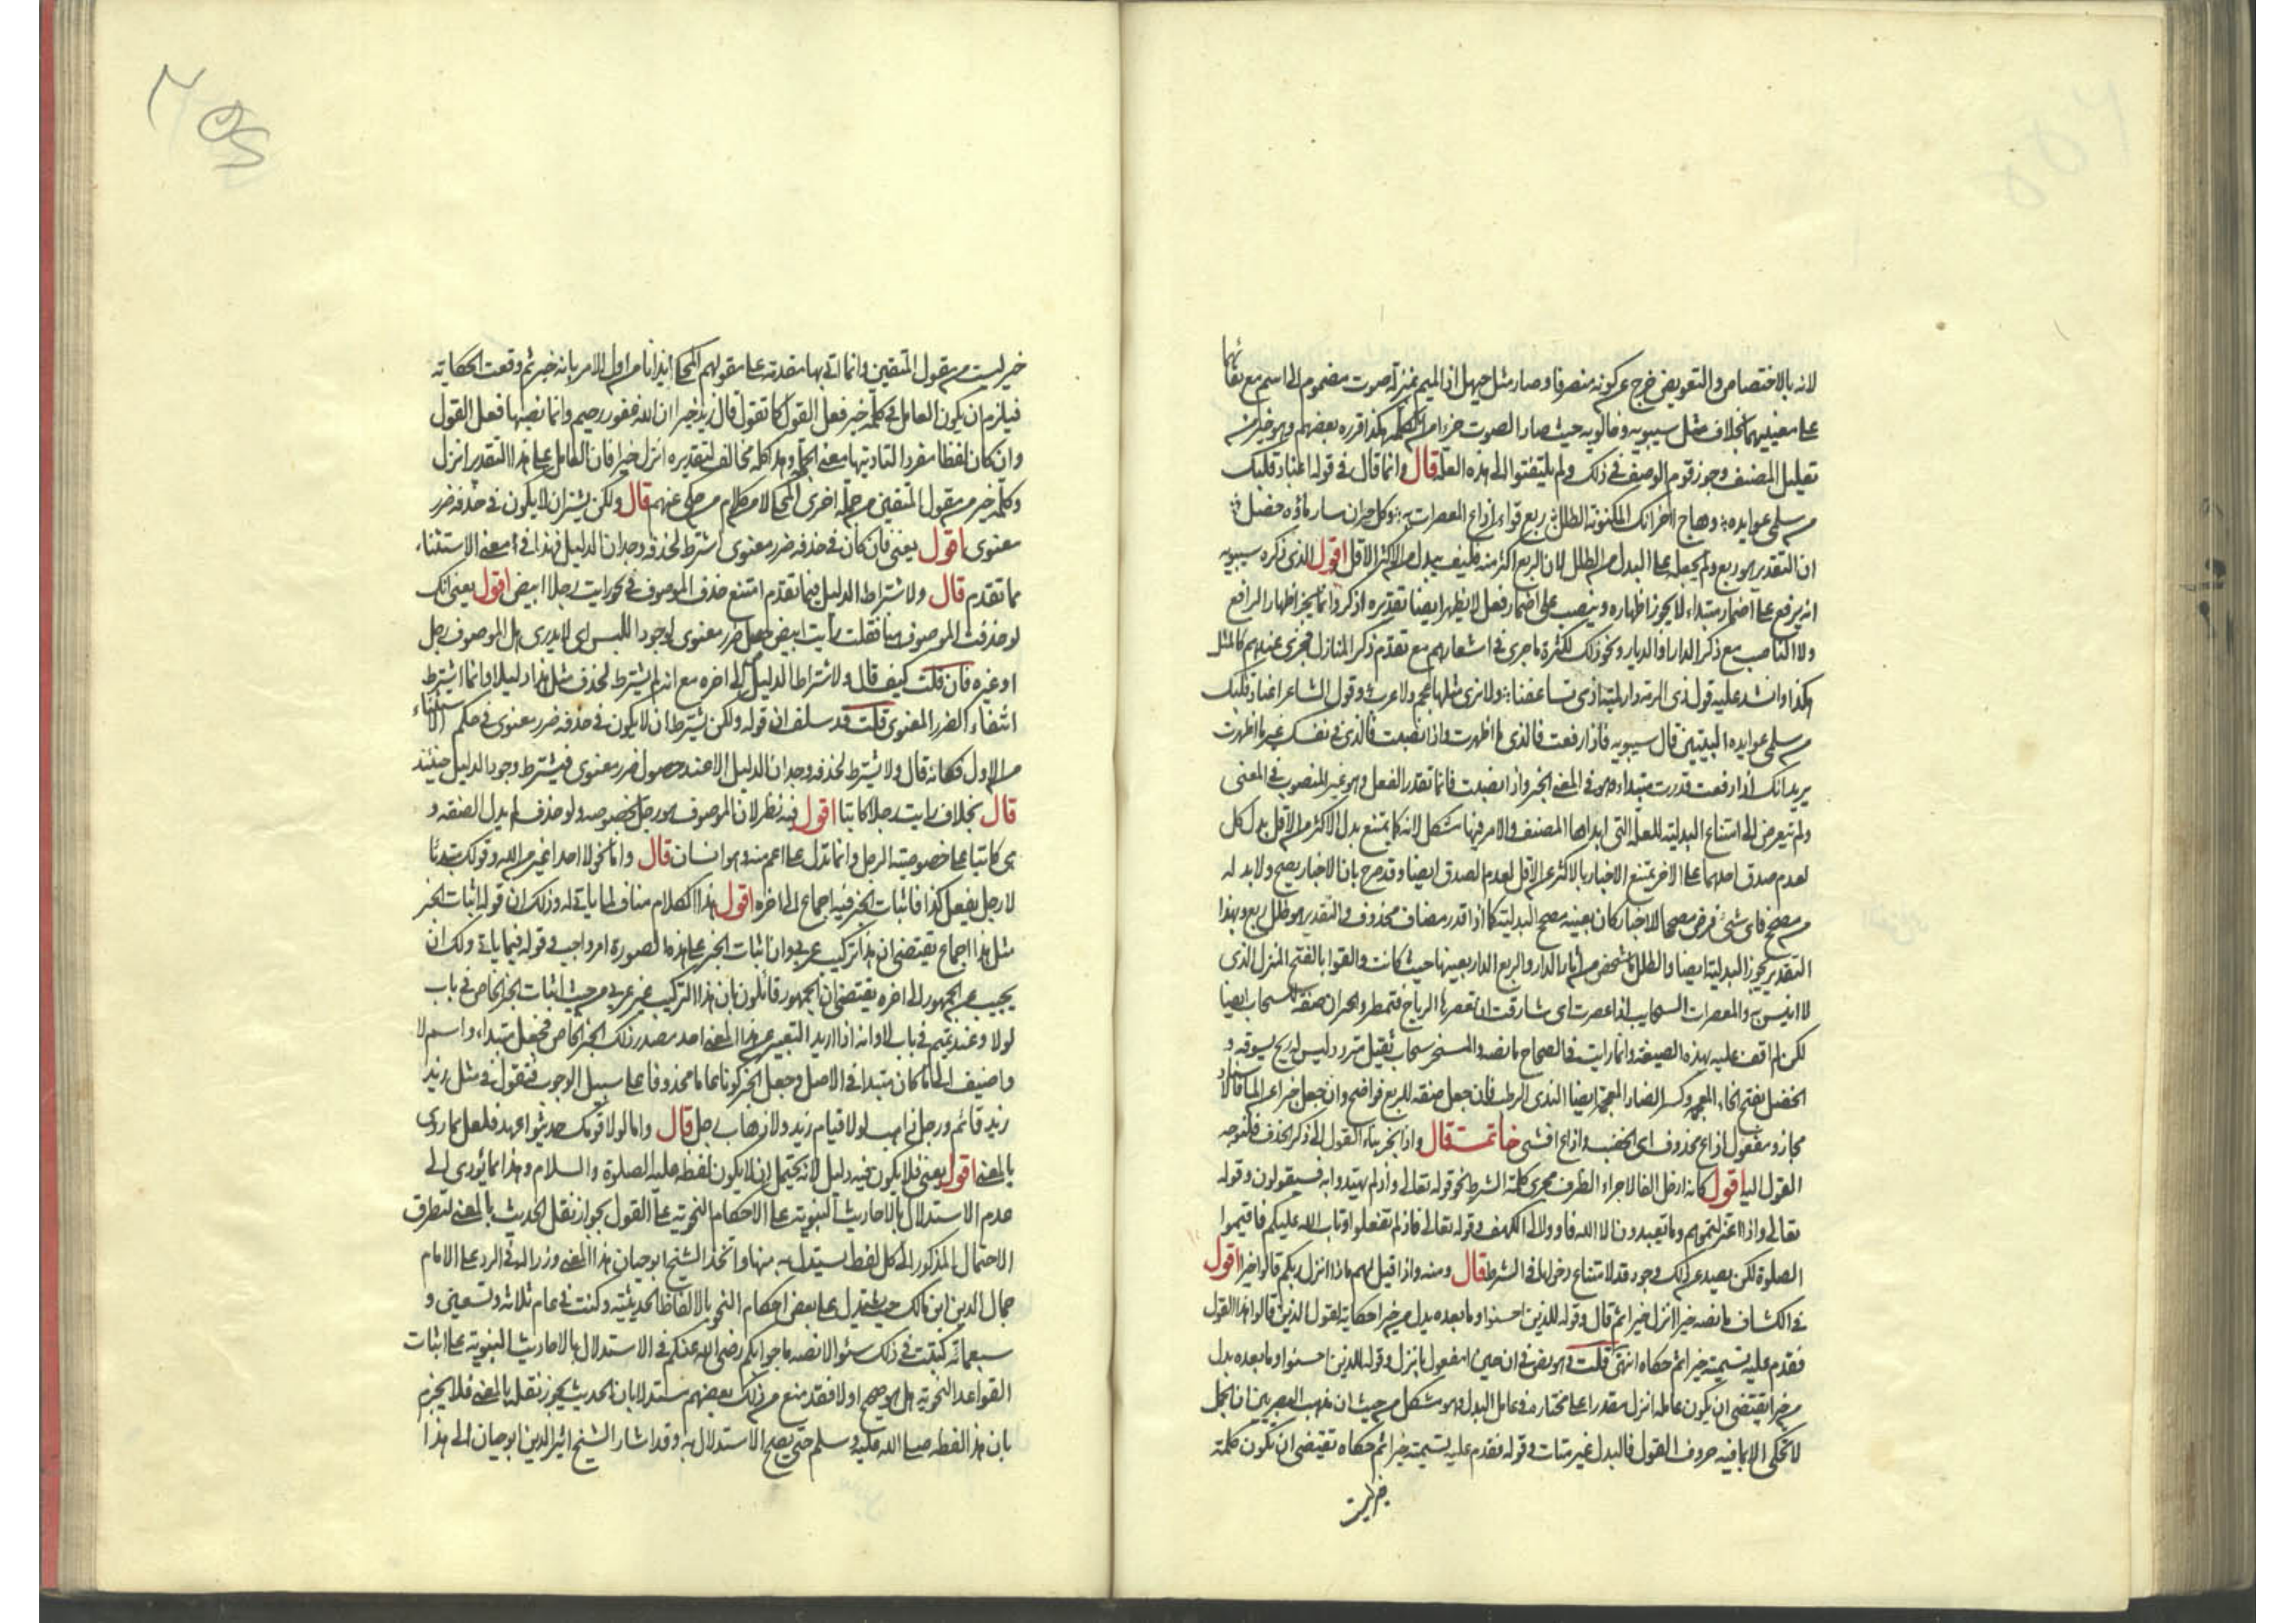 لانه بالاختصاص والتعويض خرج عن كونه متصرفا وصار مثل حيهل اذ الميم بمنزلة صوت مضموم الى اسم مع بقائهما
على معنييهما بخلاف مثل سيبويه وخالويه حيث صار الصوت جزءا من الكلمة هكذا قرره بعضهم وهو خير من
تعليل المصنف وجوز قوم الوصف في ذلك ولم يلتفتوا الى هذه العلة قال وانما قال في قوله اعتاد قلبك
من سلمى عوايده وهاج احزانك المكنونة الطلل ربع قواء اذاع المعصرات به وكل حيران سار ماؤه خضل
ان التقدير هو ربع ولم يجعله على البدل من الطلل لان الربع اكثر منه فكيف يبدل الاكثر من الاقل اقول الذي ذكره سيبويه
انه يرفع على اضمار مبتداء لا يجوز اظهاره وينصب على اضمار فعل لا يظهر ايضا تقديره اذكر وانما لم يجز اظهار الرافع
ولا الناصب مع ذكر الدار او الديار ونحو ذلك لكثرة ما جرى في اشعارهم مع تقدم ذكر المنازل فجرى عندهم كالمثل
هكذا وانشد عليه قول ذي الرمة ديار مية اذ مي تساعفنا ولا يرى مثلها عجم ولا عرب وقول الشاعر اعتاد قلبك
من سلمى عوايده البيتين قال سيبويه فاذا رفعت فالذي ما اظهرت واذا نصبت فالذي في نفسك غير ما اظهرت
يريد انك اذا رفعت قدرت مبتداء وهو في المعنى الخبر واذا نصبت فانما تقدر الفعل وهو غير المنصوب في المعنى
ولم يتعرض الى امتناع البدلية للعلة التي ابداها المصنف والامر فيها مشكل لانه كما يمتنع بدل الاكثر من الاقل بدل كل
لعدم صدق احدهما على الاخر يمتنع الاخبار بالاكثر عن الاقل لعدم الصدق ايضا وقد صرح بان الاخبار يصح ولا بد له
من مصحح فاي شيء فرض مصححا لاخبار كان بعينه مصحح البدلية كما اذا قدر مضاف محذوف والتقدير هو طلل ربع وبهذا
التقدير يجوز البدلية ايضا والطلل ما شخص من اثار الدار والربع الدار بعينها حيث كانت والقواء بالفتح المنزل الذي
لا انيس به والمعصرات السحايب اذا عصرت اي شارفت ان تعصرها الرياح فتمطر والحيران صفة للسحاب ايضا
لكن لم اقف عليه بهذه الصيغة وانما رايت في الصحاح ما نصه والمستحير سحاب ثقيل متردد ليس له ريح يسوقه و
الخضل بفتح الخاء المعجمة وكسر الضاد المعجمة ايضا الندى الرطب فان جعل صفة للربع فواضح وان جعل خبرا عن الماء فالاسناد
مجاز ومفعول اذاع محذوف اي الخصب واذاع افشى خاتمة قال واذا انجر بناء القول الى ذكر الحذف فلنوجه
القول اليه اقول كانه ادخل الفا لاجراء الظرف مجرى كلمة الشرط نحو قوله تعالى واذ لم يهتدوا به فسيقولون وقوله
تعالى واذ اعتزلتموهم وما يعبدون الا الله فاووا الى الكهف وقوله تعالى فاذ لم تفعلوا وتاب الله عليكم فاقيموا
الصلوة لكن يصد عن ذلك وجود قد لامتناع دخولها في الشرط قال ومنه واذا قيل لهم ماذا انزل ربكم قالوا خيرا اقول
في الكشاف ما نصه خيرا انزل خيرا ثم قال وقوله للذين احسنوا وما بعده بدل من خيرا حكاية لقول الذين قالوا هذا القول
فقدم عليه تسميته خيرا ثم حكاه انتهى قلت وهو نص في ان خيرا مفعول بانزل وقوله للذين احسنوا وما بعده بدل
من خيرا يقتضي ان يكون عامله انزل مقدرا على مختاره في عامل البدل وهو مشكل من حيث ان مذهب البصريين ان الجمل
لا تحكى الا بما فيه حروف القول فالبدل غير متات وقوله فقدم عليه تسميته خيرا ثم حكاه تقتضي ان يكون كلمة
خير ليست
خير ليست من مقول المتقين وانما اتى بها مقدمة على مقولهم المحكي ايذانا من اول الامر بانه خير ثم وقعت الحكاية
فيلزم ان يكون العامل في كلمة خير فعل القول كما تقول قال زيد خيرا ان الله غفور رحيم وانما نصبها فعل القول
وان كان لفظا مفردا لتاديتها معنى الجملة وهذا كله مخالف لتقديره انزل خيرا فان العامل على هذا التقدير انزل
وكلمة خير من مقول المتقين من جملة اخرى المحكي لا من كلام من حكى عنهم قال ولكن يشترط ان لا يكون في حذفه ضرر
معنوي اقول يعني فان كان في حذفه ضرر معنوي اشترط لحذفه وجدان الدليل فهذا في معنى الاستثناء
مما تقدم قال ولاشتراط الدليل فيما تقدم امتنع حذف الموصوف في نحو رايت رجلا ابيض اقول يعني انك
لو حذفت الموصوف هنا فقلت رايت ابيض حصل ضرر معنوي لوجود اللبس اي لا يدرى هل الموصوف رجل
او غيره فان قلت كيف قال ولاشتراط الدليل الى اخره مع انه لم يشترط لحذف مثل هذا دليلا وانما اشترط
انتفاء الضرر المعنوي قلت قد سلف ان قوله ولكن يشترط ان لا يكون في حذفه ضرر معنوي في حكم الاستثناء
من الاول فكانه قال ولا يشترط لحذفه وجدان الدليل الا عند حصول ضرر معنوي فيشترط وجود الدليل حينئذ
قال بخلاف رايت رجلا كاتبا اقول فيه نظر لان الموصوف هو رجل بخصوصه ولو حذف لم يدل الصفة و
هي كاتبا على خصوصية الرجل وانما تدل على اعم منه وهو انسان قال واما نحو لا احد اغير من الله وقولك مبتدئا
لا رجل يفعل كذا فاثبات الخبر فيه اجماع الى اخره اقول هذا الكلام مناف لما ياتي له وذلك ان قوله اثبات الخبر
مثل هذا اجماع يقتضي ان هذا تركيب عربي وان اثبات الخبر على هذه الصورة امر واجب وقوله فيما ياتي ولك ان
يجيب عن الجمهور الى اخره يقتضي ان الجمهور قائلون بان هذا التركيب غير عربي من حيث اثبات الخبر الخاص في باب
لولا وعند تميم في باب لا وانه اذا اريد التعبير عن هذا المعنى اخذ مصدر ذلك الخبر الخاص فجعل مبتداء واسم لا
واضيف الى ما كان مبتدا في الاصل وجعل الخبر كونا عاما محذوفا على سبيل الوجوب فتقول في مثل زيد
زيد قائم ورجل ذاهب لولا قيام زيد ولا ذهاب رجل قال واما لولا قومك حديثوا عهد فلعله مما روي
بالمعنى اقول يعني فلا يكون فيه دليل لانه يحتمل ان لا يكون لفظه عليه الصلوة والسلام وهذا مما يؤدي الى
عدم الاستدلال بالاحاديث النبوية على الاحكام النحوية على القول بجواز نقل الحديث بالمعنى لتطرق
الاحتمال المذكور الى كل لفظ يستدل به منها واتخذ الشيخ ابو حيان هذا المعنى وزرا له في الرد على الامام
جمال الدين ابن مالك حيث يستدل على بعض احكام النحو بالالفاظ الحديثية وكنت في عام ثلاثة وتسعين و
سبعمائة كتبت في ذلك سئوالا نصه ما جوابكم رضي الله عنكم في الاستدلال بالاحاديث النبوية على اثبات
القواعد النحوية هل هو صحيح او لا فقد منع من ذلك بعضهم مستدلا بان الحديث يجوز نقله بالمعنى فلا يجزم
بان هذا لفظه صلى الله عليه وسلم حتى يصح الاستدلال به وقد اشار الشيخ اثير الدين ابو حيان الى هذا